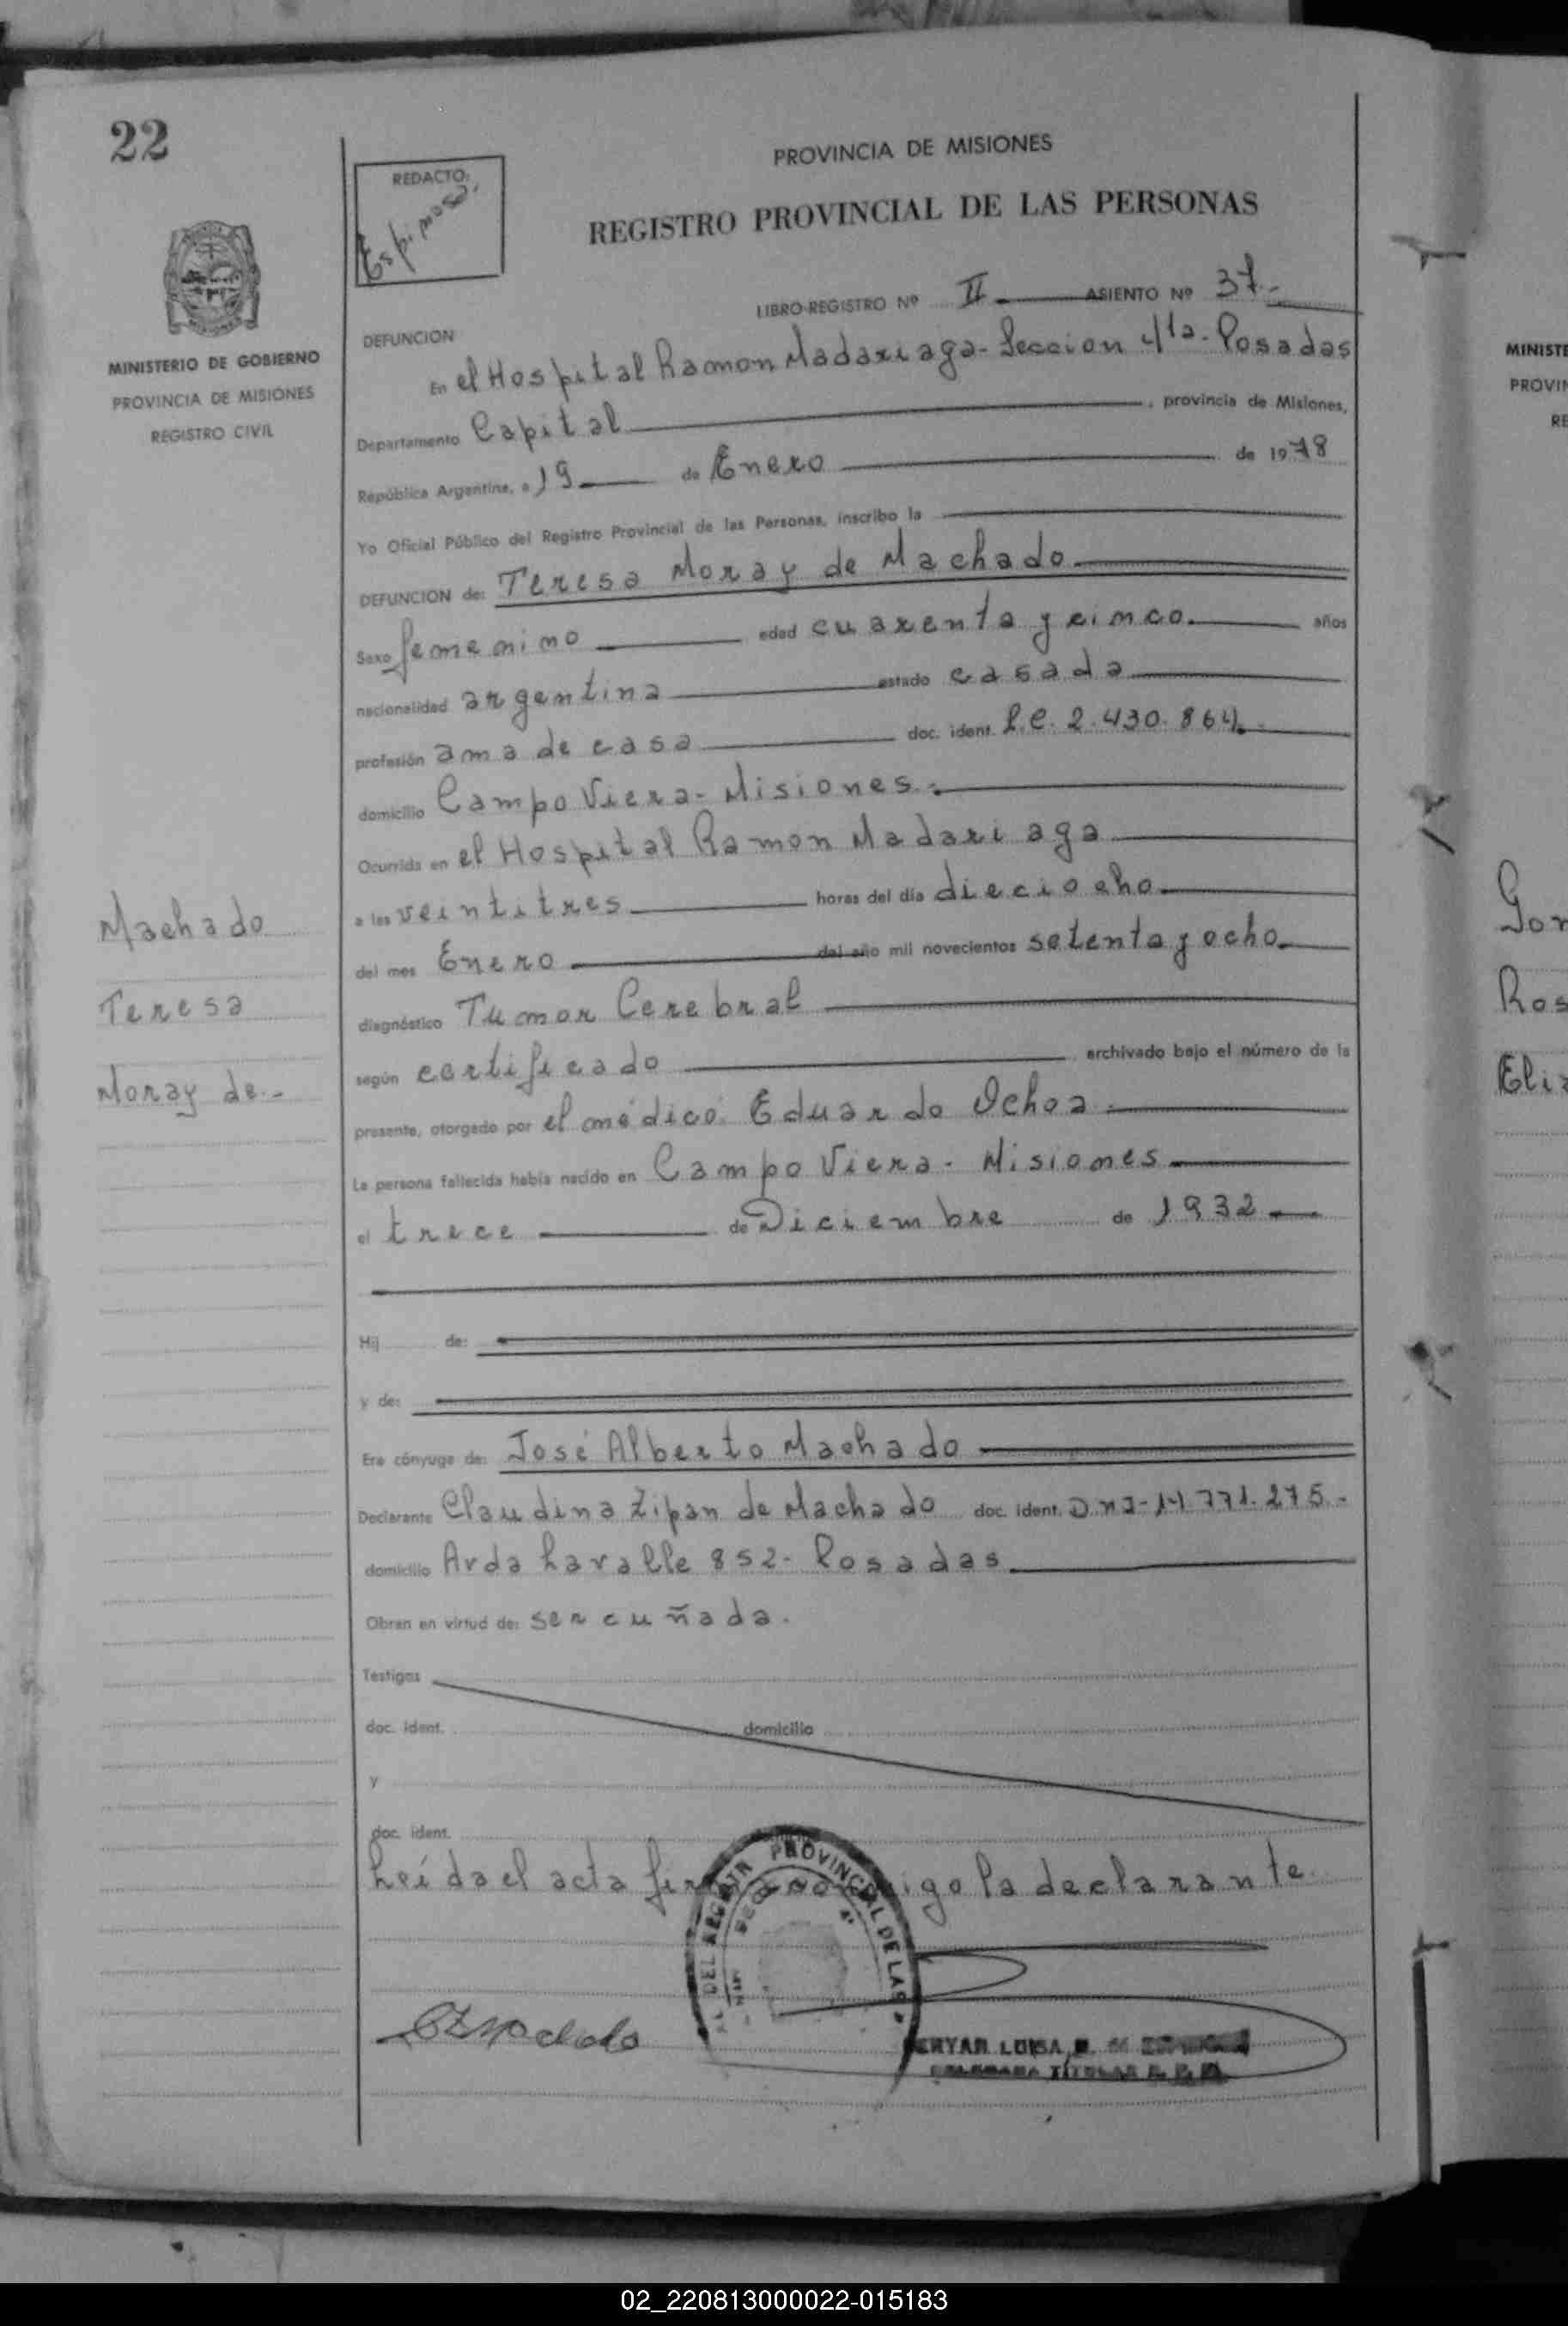 22
PROVINCIA DE MISIONES
REDACTO:
Espinosa.
REGISTRO PROVINCIAL DE LAS PERSONAS
LIBRO-REGISTRO Nº II ASIENTO Nº 37.-
MINISTERIO DE GOBIERNO
PROVINCIA DE MISIONES
REGISTRO CIVIL
DEFUNCION
En el Hospital Ramon Madariaga- Seccion 4ta- Posadas
Departamento Capital , provincia de Misiones,
República Argentina, a 19 de Enero de 1978
Yo Oficial Público del Registro Provincial de las Personas, inscribo la
DEFUNCION de: Teresa Moray de Machado
Sexo femenino edad cuarenta y cinco. años
nacionalidad argentina estado casada
profesión ama de casa doc. ident. L.C. 2.430.864.
domicilio Campo Viera- Misiones.
Ocurrida en el Hospital Ramon Madariaga
a las veintitres horas del día dieciocho
del mes Enero del año mil novecientos setenta y ocho
diagnóstico Tumor Cerebral
según certificado archivado bajo el número de la
presente, otorgado por el médico: Eduardo Ochoa
La persona fallecida había nacido en Campo Viera- Misiones
el trece de Diciembre de 1932
Machado
Teresa
Moray de.-
Hij de:
y de:
Era cónyuge de: José Alberto Machado
Declarante Claudina Zipan de Machado doc. ident. D.N.I- 14.771.275.-
domicilio Avda Lavalle 852- Posadas
Obran en virtud de: ser cuñada.
Testigos
doc. ident. domicilio
y
doc. ident.
Leída el acta la declarante
PROVINCIAL DE LAS
LUISA
MINISTE
PROVIN
RE
Gon
Ros
Eliz
02_220813000022-015183